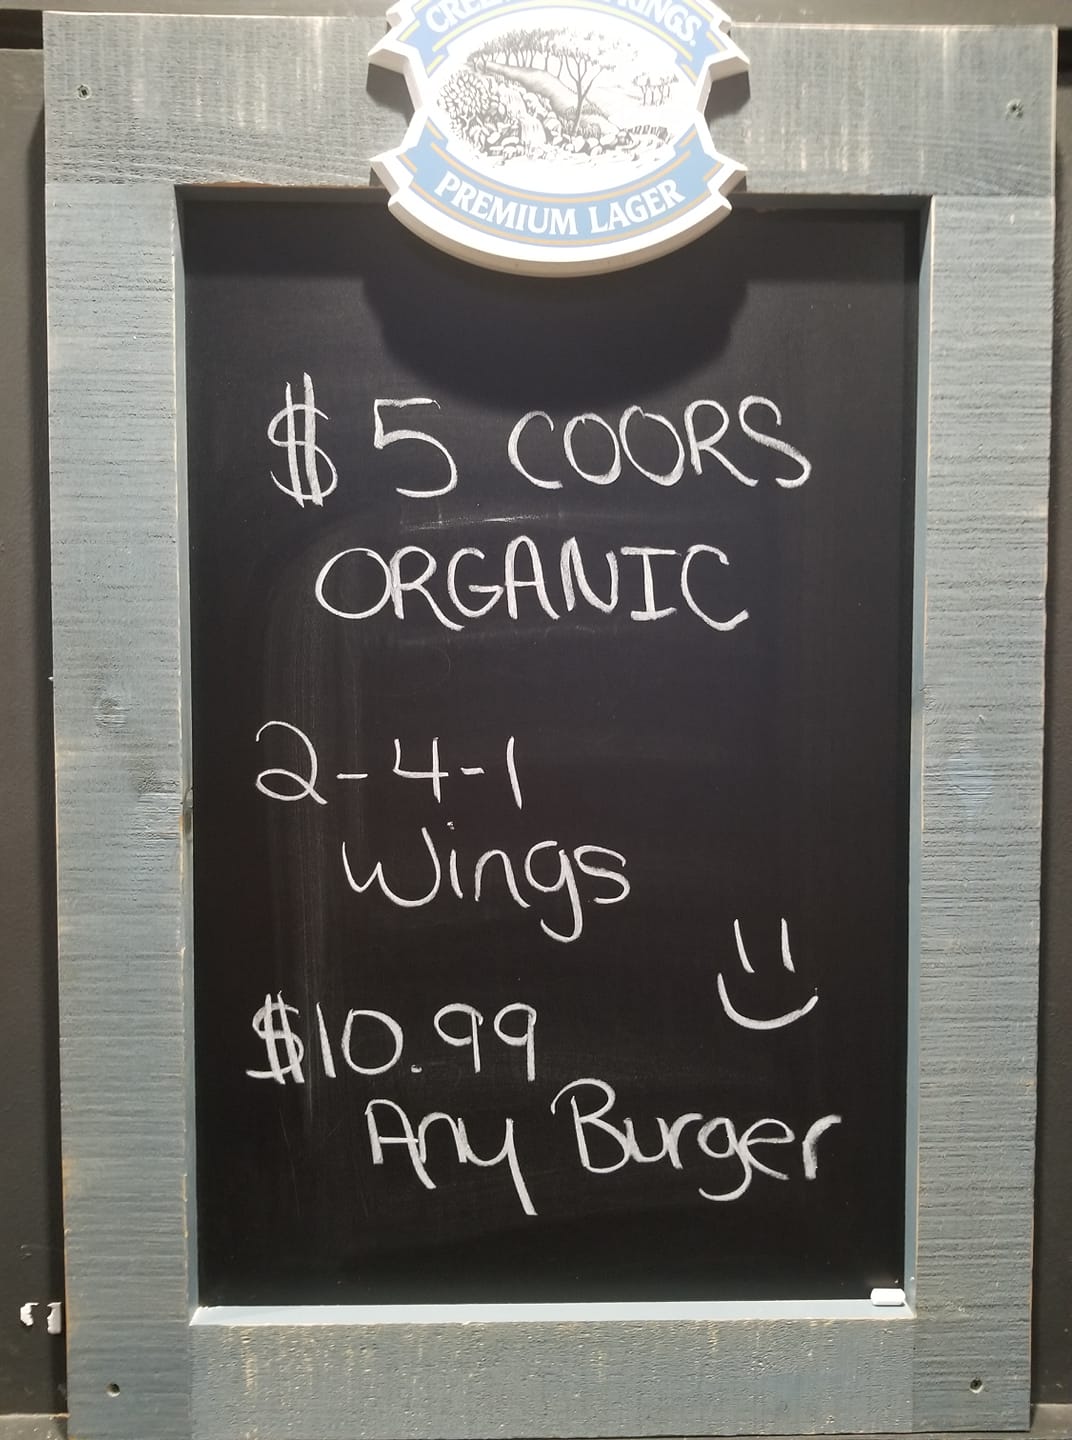 SPRINGS.
PREMIUM LAGER
$5 COORS
ORGANIC
2-4-1
Wings
$10.99
Any Burger